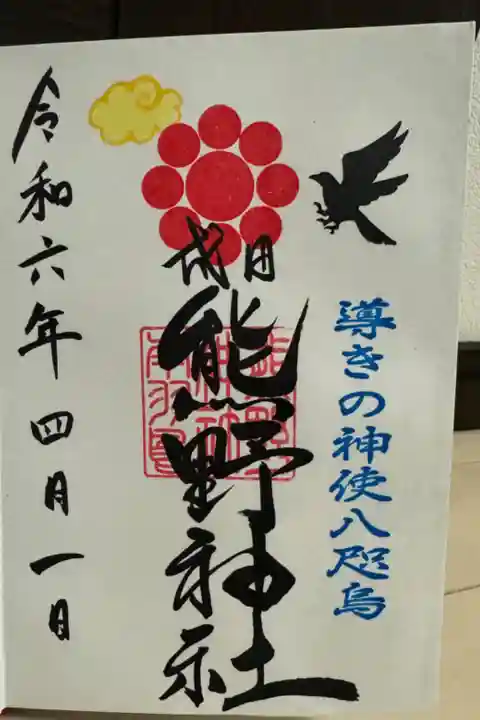 導きの神使八咫烏
成田
熊野神社
南羽鳥
令和六年四月一日